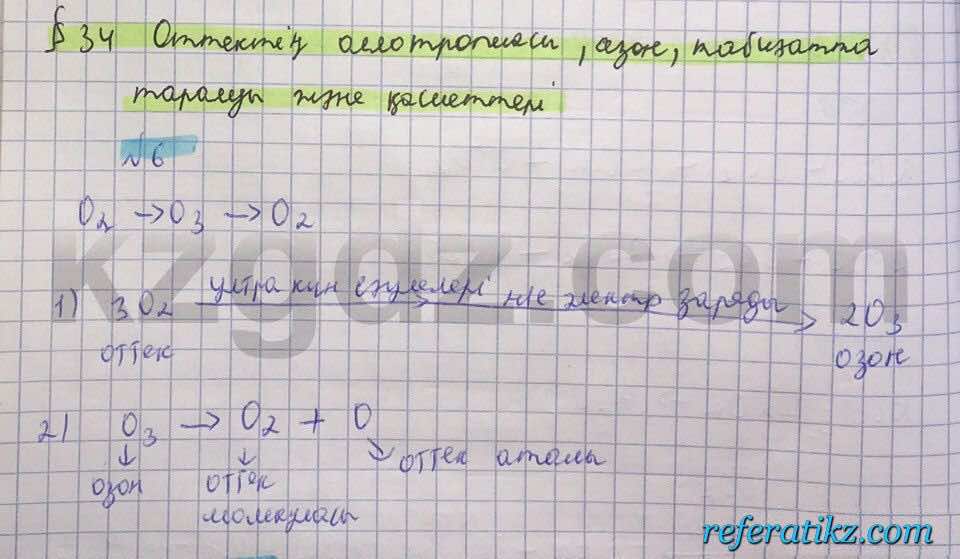 § 34 Оттектің аллотропиясы, озон, табиғатта
таралуы және қасиеттері
№6
O₂ → O₃ → O₂
1) 3O₂ ультра күн сәулелері не электр заряды → 2O₃
оттек озон
2) O₃ → O₂ + O
озон оттек оттек атомы
молекуласы
kzgdz.com
referatikz.com